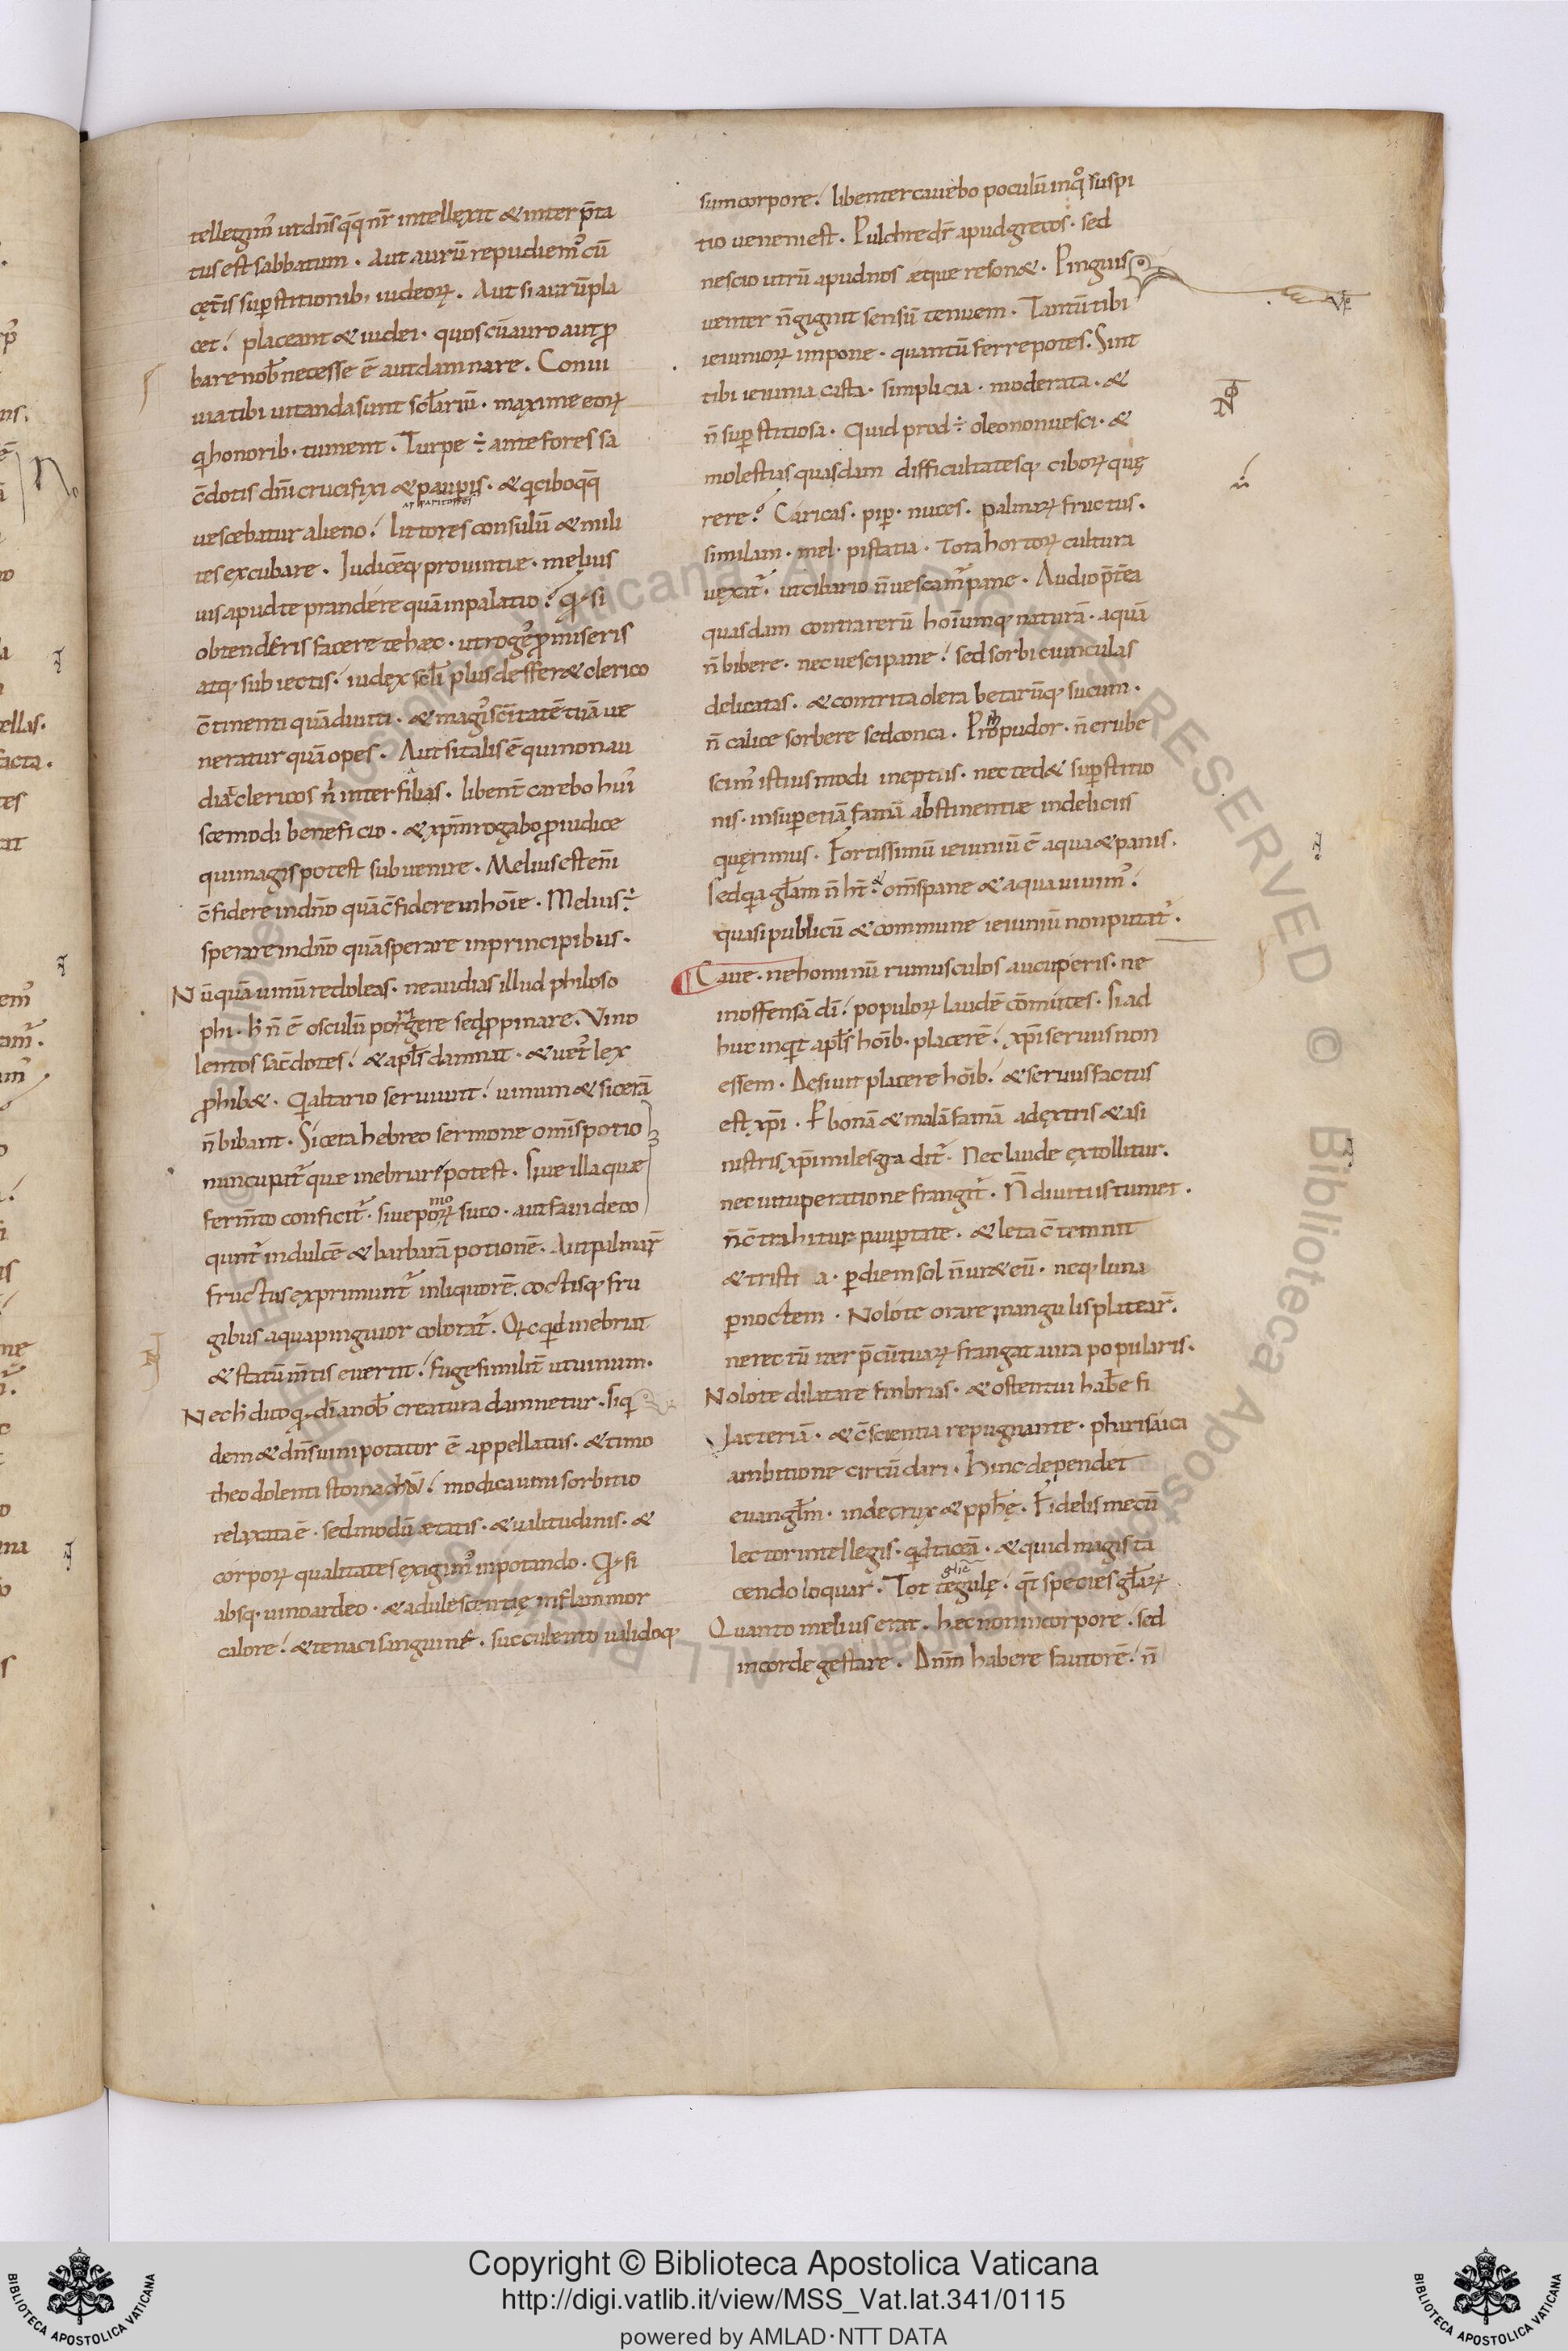 tellegim᷒ ut dn̄s q̄q; nr̄ intellexit & interp̄ta
tus est sabbatum. Aut aurū repudiem᷒ cū
cęt̄is sup̱stitionib; iudeoꝝ. Aut si aurū pla
cet. placeant & iudei. quos cū auro aut ꝓ
bare nob̄ necesse ē aut damnare. Conui
uia tibi uitanda sunt scl̄ariū. maxime eoꝝ
qi honorib. tument. Turpe ÷ ante fores sa
c̄dotis dn̄i crucifixi & paup̱is. & qi cibo q̄q;
apparitores
uescebatur alieno. littores consulū & mili
tes excubare. Iudicēq; prouintię. melius
uis apud te prandere quā in palatio. Qd si
obtenderis facere te hæc. ut roges ꝓ miseris
atq; subiectis. iudex scl̄i plus defferæ clerico
c̄tinenti quā diuiti. & magis sc̄itatē tuā ue
neratur quā opes. Aut si talis ē qui non au
diat clericos n̄ inter fialas. libent̄ carebo hui᷒
scemodi beneficio. & xp̄m rogabo ꝓ iudice
qui magis potest subuenire. Melius est eni̅
c̄fidere in dn̄o quā c̄fidere in hoīe. Melius ÷
sperare in dn̄o quā sperare in principibus.
Nūquā uinū redoleas. ne audias illud philoso
phi. h̄ n̄ ē osculū porrigere sed ꝓpinare. Vino
lentos sac̄dotes. & apl̄s damnat. & uet᷒ lex
ꝓhibæ. Qi altario seruiunt. uinum & sicerā
n̄ bibant. Sicera hebreo sermone om̄is potio
nuncupat᷑ que inebriari potest. Siue illa quæ
ferm̄to conficit᷑. siue pomoꝝ suco. aut faui deco
qunt᷑ in dulcē & barbarā potionē. Aut palmaꝝ
fructus exprimunt᷑ in liquorē. coctisq; fru
gibus aqua pinguior colorat᷑. Qicqid inebriat
& statū m̄tis euertit. fuge similit̄ ut uinum.
Nec h̄ dico qd di̅ a nob̄ creatura damnetur. Siqi
dem & dn̄s uini potator ē appellatus. & timo
theo dolenti stomachū. modica uini sorbitio
relaxata ē. sed modū ætatis. & ualitudinis. &
corpoꝝ qualitates exigim᷒ in potando. Qd si
absq; uino ardeo. & adulescentię inflammor
calore. & tenaci sanguine. succulento ualidoq;
sum corpore. libenter carebo poculū in qo suspi
tio ueneni est. Pulchre dr̄ apud grecos. sed
nescio utrū apud nos æque resonæ. Pinguis
uenter n̄ gignit sensū tenuem. Tantū tibi
ieiunioꝝ impone. quantū ferre potes. Sint
tibi ieiunia casta. simplicia. moderata. &
n̄ sup̱stitiosa. Quid prod÷ oleo non uesci. &
molestias quasdam difficultatesq; ciboꝝ quę
rere. Caricas. pip̱. nuces. palmaꝝ fructus.
similam. mel. pistatia. Tota hortoꝝ cultura
uexat᷑. ut cibario n̄ uescam᷑ pane. Audio p̄t̄ea
quasdam contra rerū hoīumq; naturā. aquā
n̄ bibere. nec uesci pane. sed sorbicunculas
delicatas. & contrita olera betarūq; sucum.
n̄ calice sorbere sed conca. Proh pudor. n̄ erube
scim᷒ istiusmodi ineptiis. nec tedæ sup̱stitio
nis. insup̱ etiā famā abstinentiæ in deliciis
quęrimus. Fortissimū ieiuniū ē aqua & panis.
Sed qia gl̄am n̄ h̄t. & om̄s pane & aqua uiuim᷒.
quasi publicū & commune ieiuniū non putat᷑.
Caue. ne hominū rumusculos aucuperis. ne
in offensā di̅. populoꝝ laudē cōmutes. Si ad
huc inqit apl̄s hoīb. placerē. xp̄i seruus non
essem. Desiuit placere hoīb. & seruus factus
est xp̄i. P̱ bonā & malā famā a dextris & a si
nistris xp̄i miles gradit᷑. Nec laude extollitur.
nec uituperatione frangit᷑. N̄ diuitiis tumet.
n̄ c̄trahitur paup̱tate. & leta c̄temnit
& tristia. p̱ diem sol n̄ uræ eū. neq; luna
p̱ noctem. Nolo te orare in angulis plateaꝝ.
ne rectū iter p̄cū tuaꝝ frangat aura popularis.
Nolo te dilatare fimbrias. & ostentui habere fi
lacteriā. & c̄scientia repugnante. pharisaica
ambitione circūdari. Hinc dependet
euangl̄m. inde crux & ꝓphetę. Fidelis mecū
lector intellegis. qid taceā. & quid magis ta
cendo loquar. Tot regulę. qt̄ species gl̄aꝝ
Quanto melius erat. hec non in corpore. sed
in corde gestare. Dn̄m habere fautorē. n̄
Copyright © Biblioteca Apostolica Vaticana
http://digi.vatlib.it/view/MSS_Vat.lat.341/0115
powered by AMLAD·NTT DATA
BIBLIOTECA APOSTOLICA VATICANA
BIBLIOTECA APOSTOLICA VATICANA